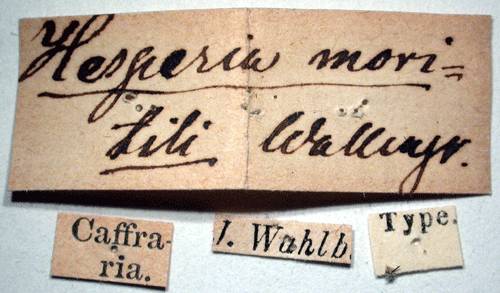 Hesperia mori=
tili Wallengr.
Caffra-
ria.
J. Wahlb.
Type.